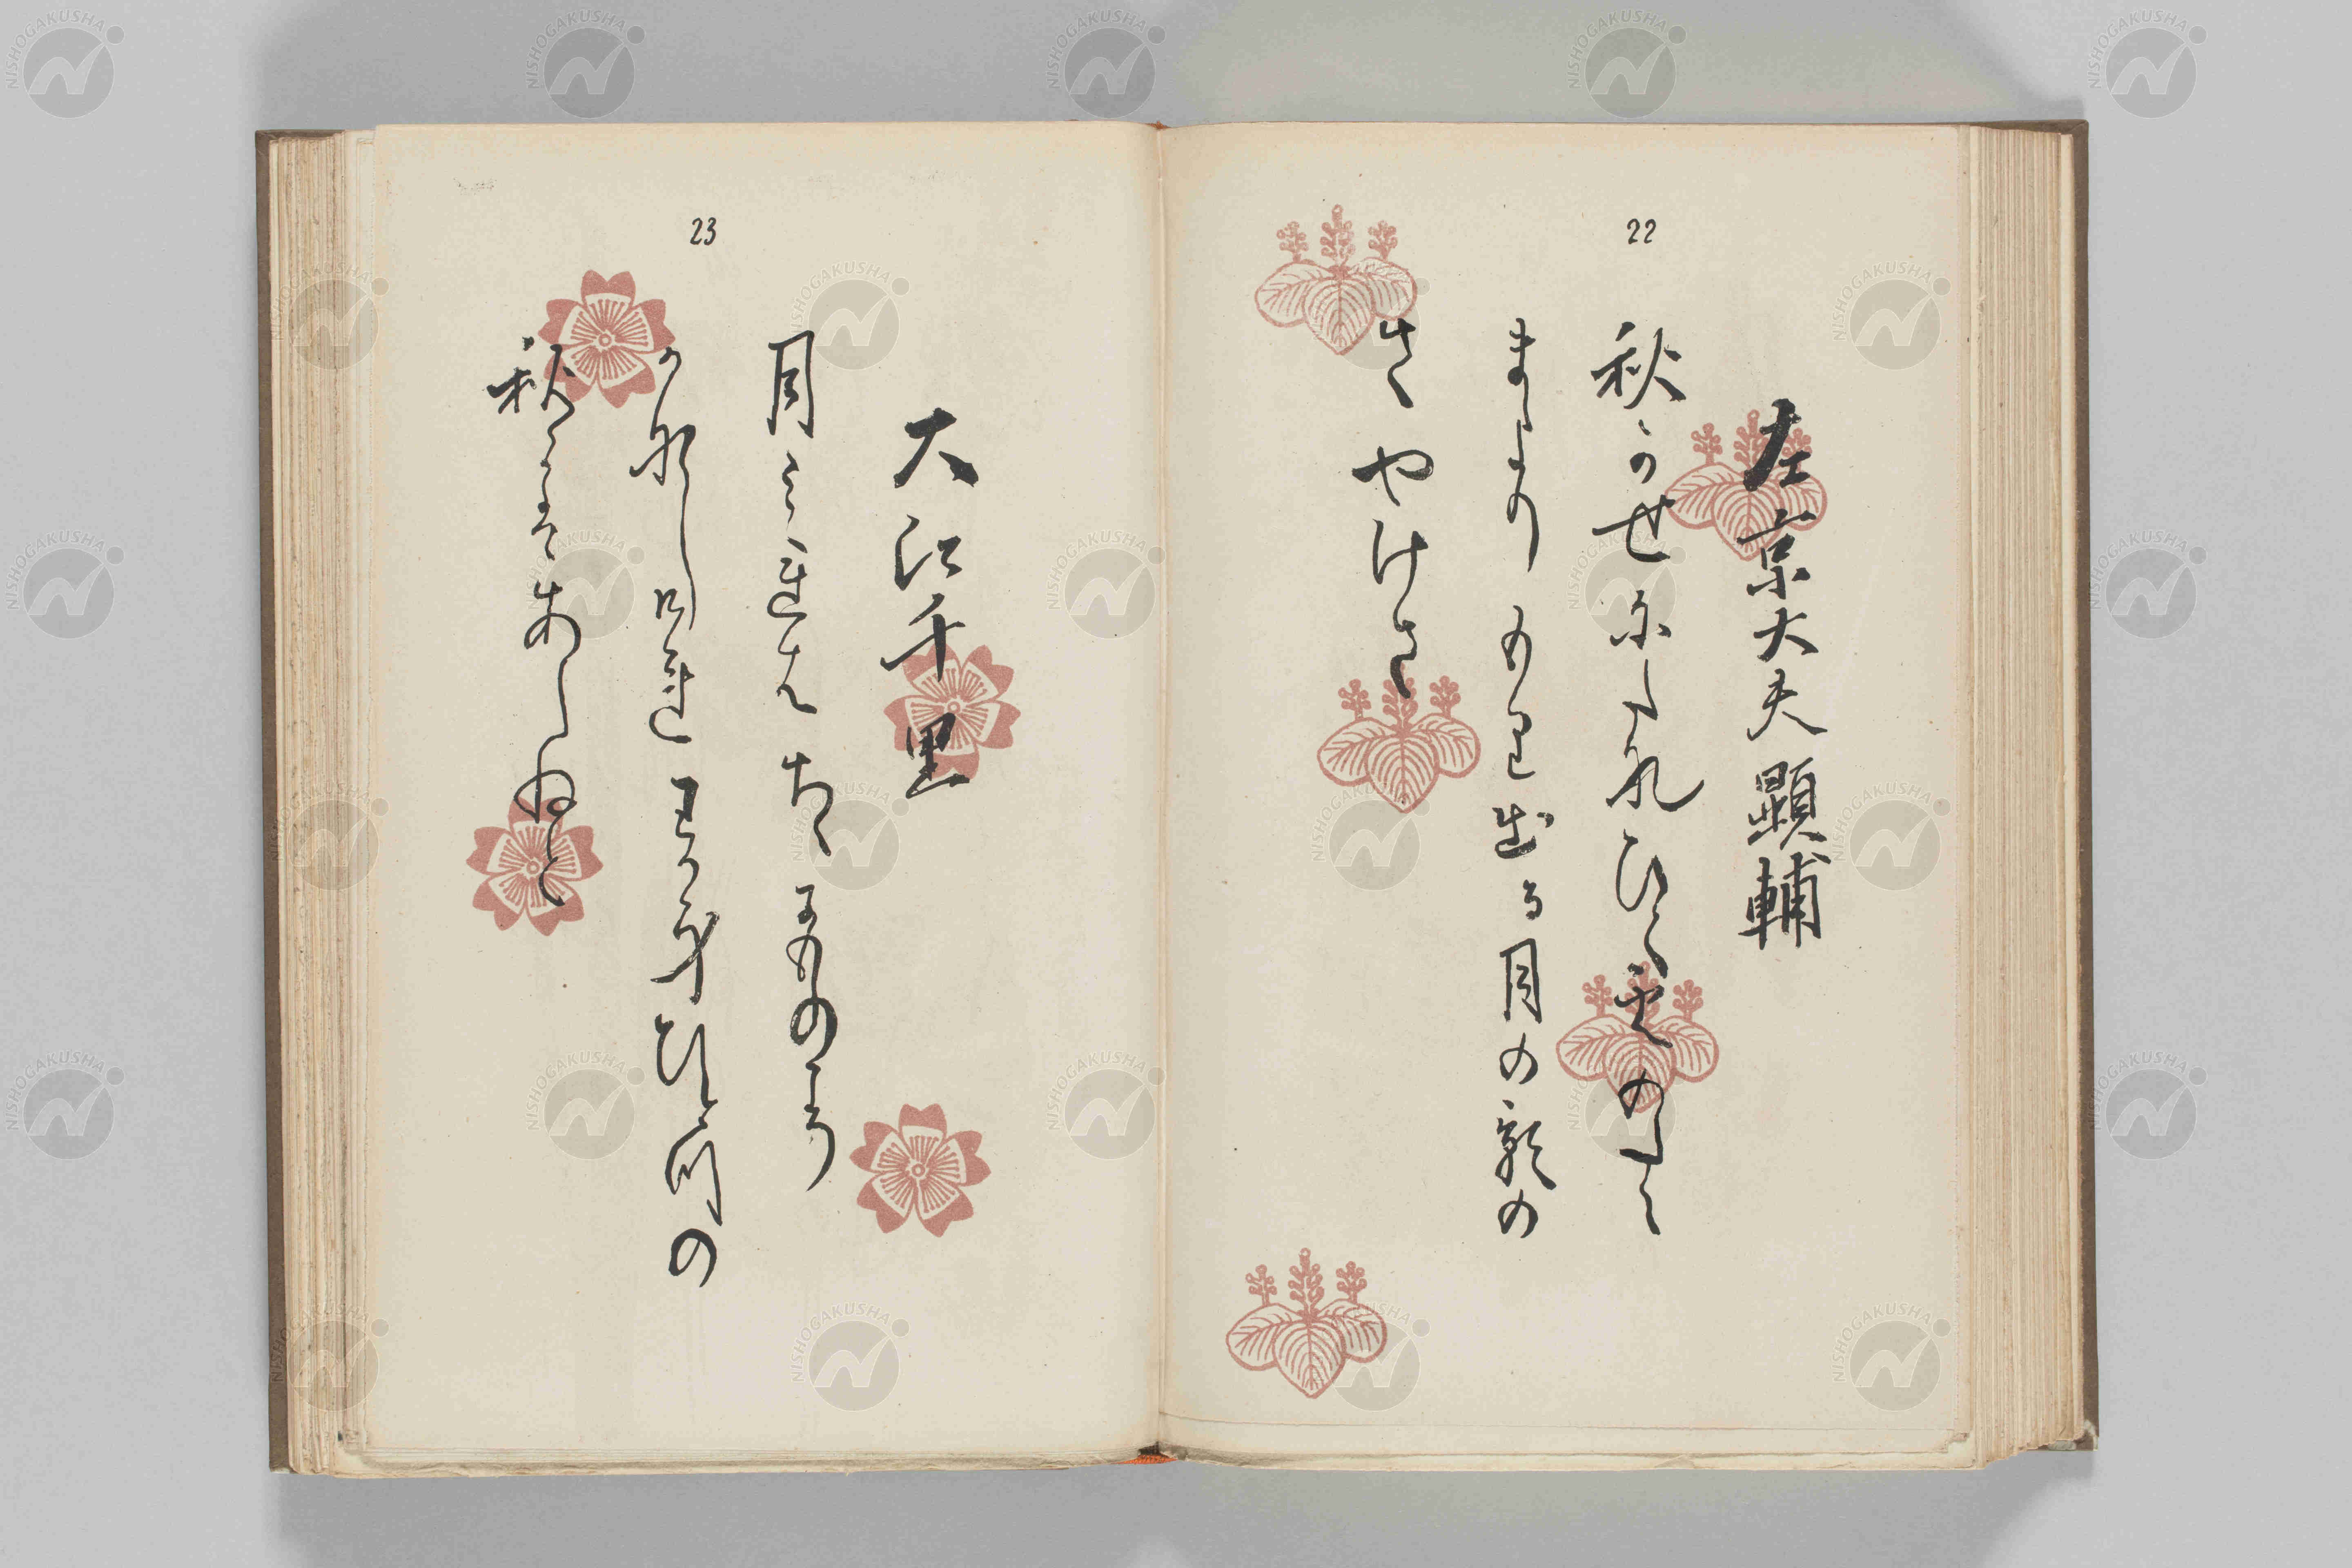 22
左京大夫顕輔
秋かせにたなひく雲のたえ
まよりもり出る月の影の
さやけさ
23
大江千里
月みれはちゝにものこそ
かなしけれわか身ひとつの
秋にはあらねと
NISHOGAKUSHA